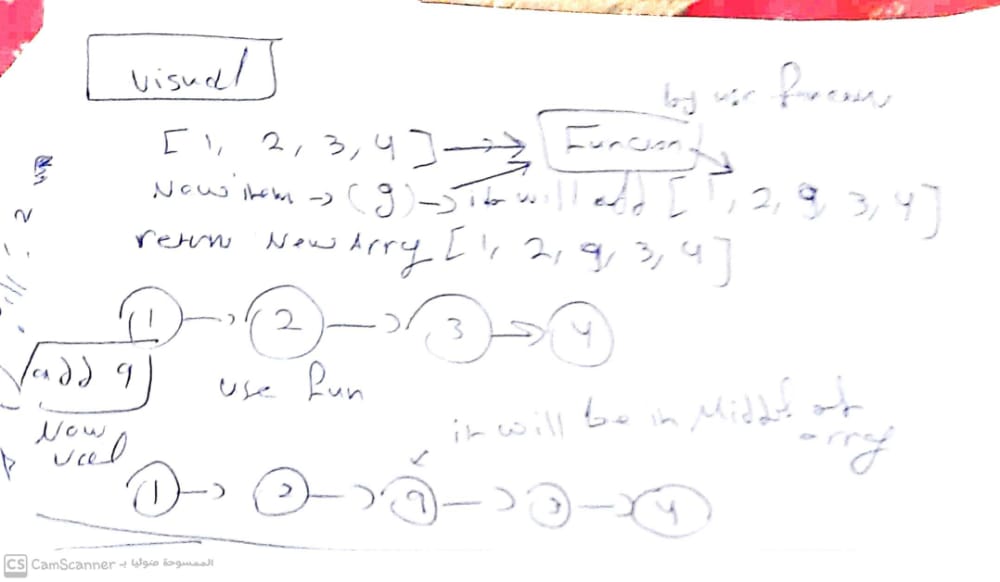 visual
by use
[1, 2, 3, 4] → Funcion
New item → (9) → it will add [1, 2, 9, 3, 4]
return New Arry [1, 2, 9, 3, 4]
1 → 2 → 3 → 4
add 9
use fun
it will be in Middle of
arry
New
1 → 2 → 9 → 3 → 4
CS CamScanner الممسوحة ضوئيا بـ